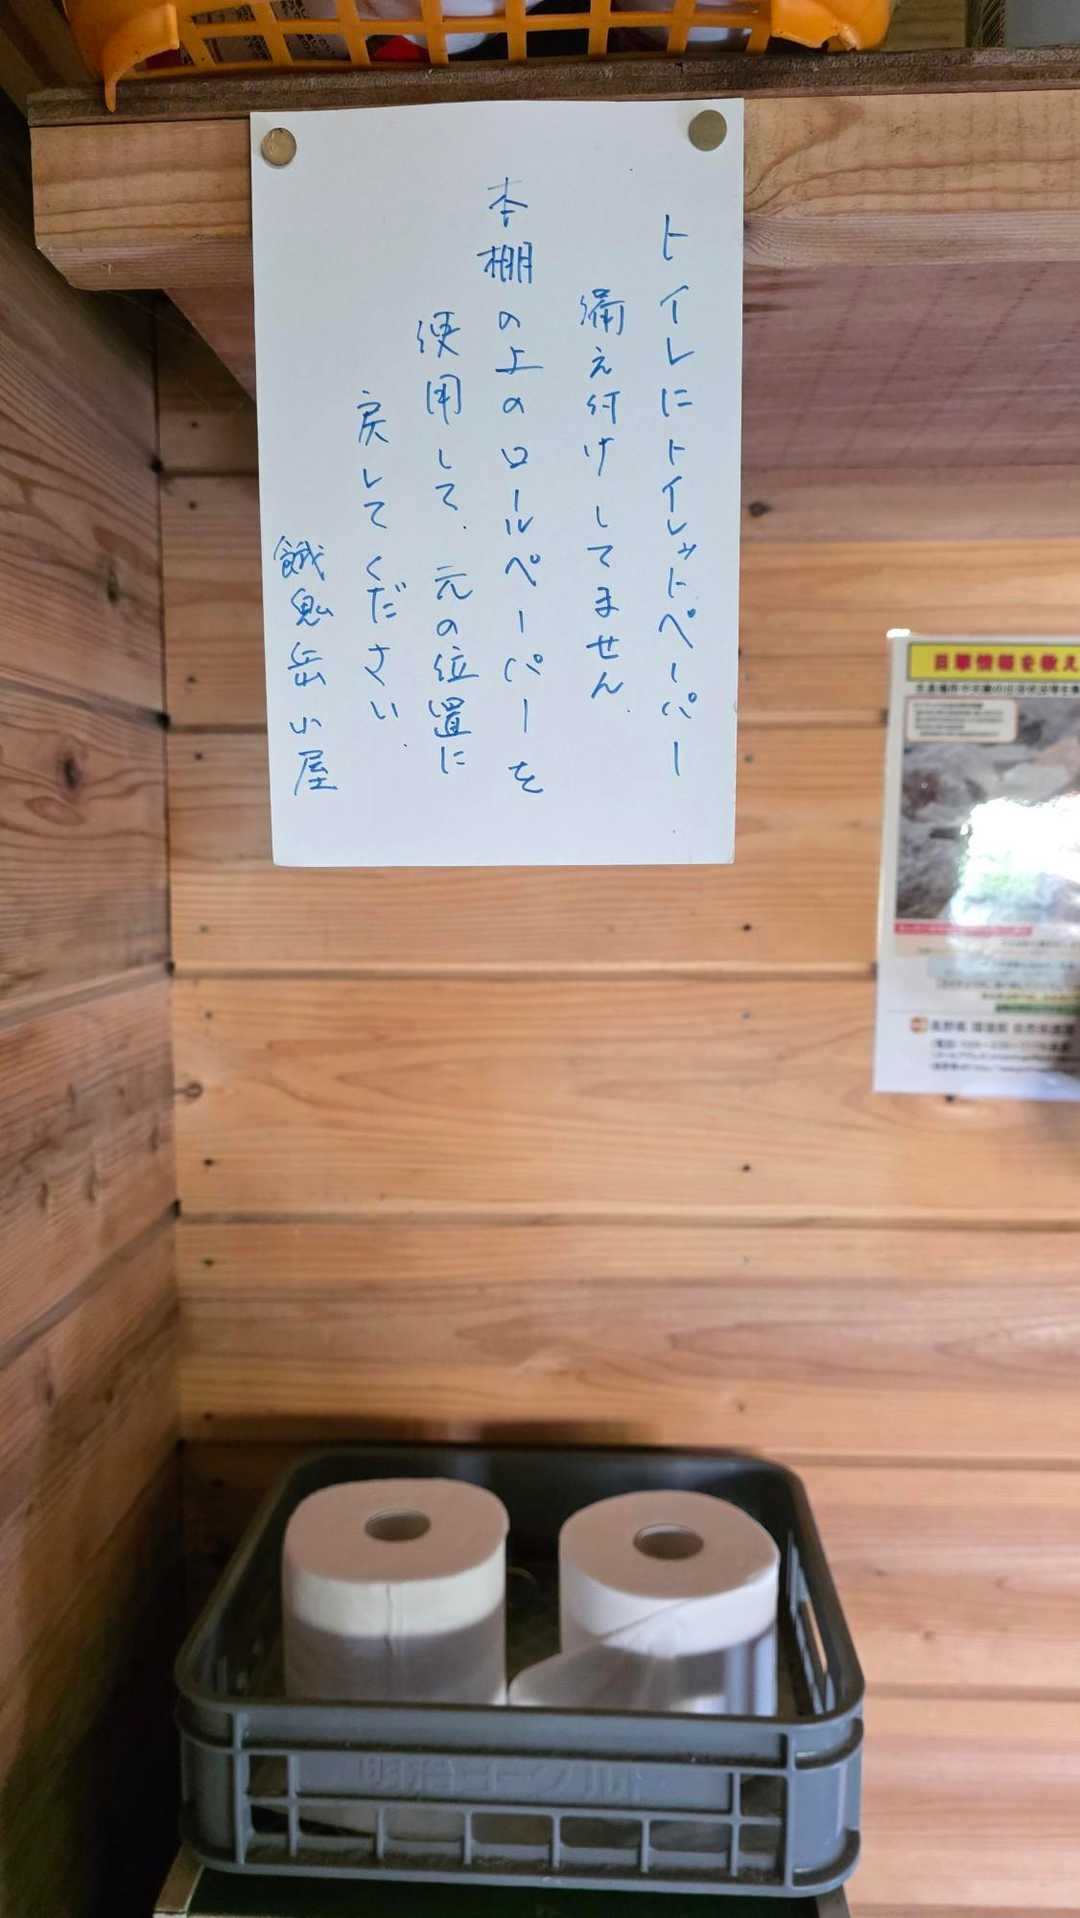 トイレにトイレットペーパー
備え付けしてません
本棚の上のロールペーパーを
使用して、元の位置に
戻してください
餓鬼岳小屋
目撃情報を教え
明治ヨーグルト